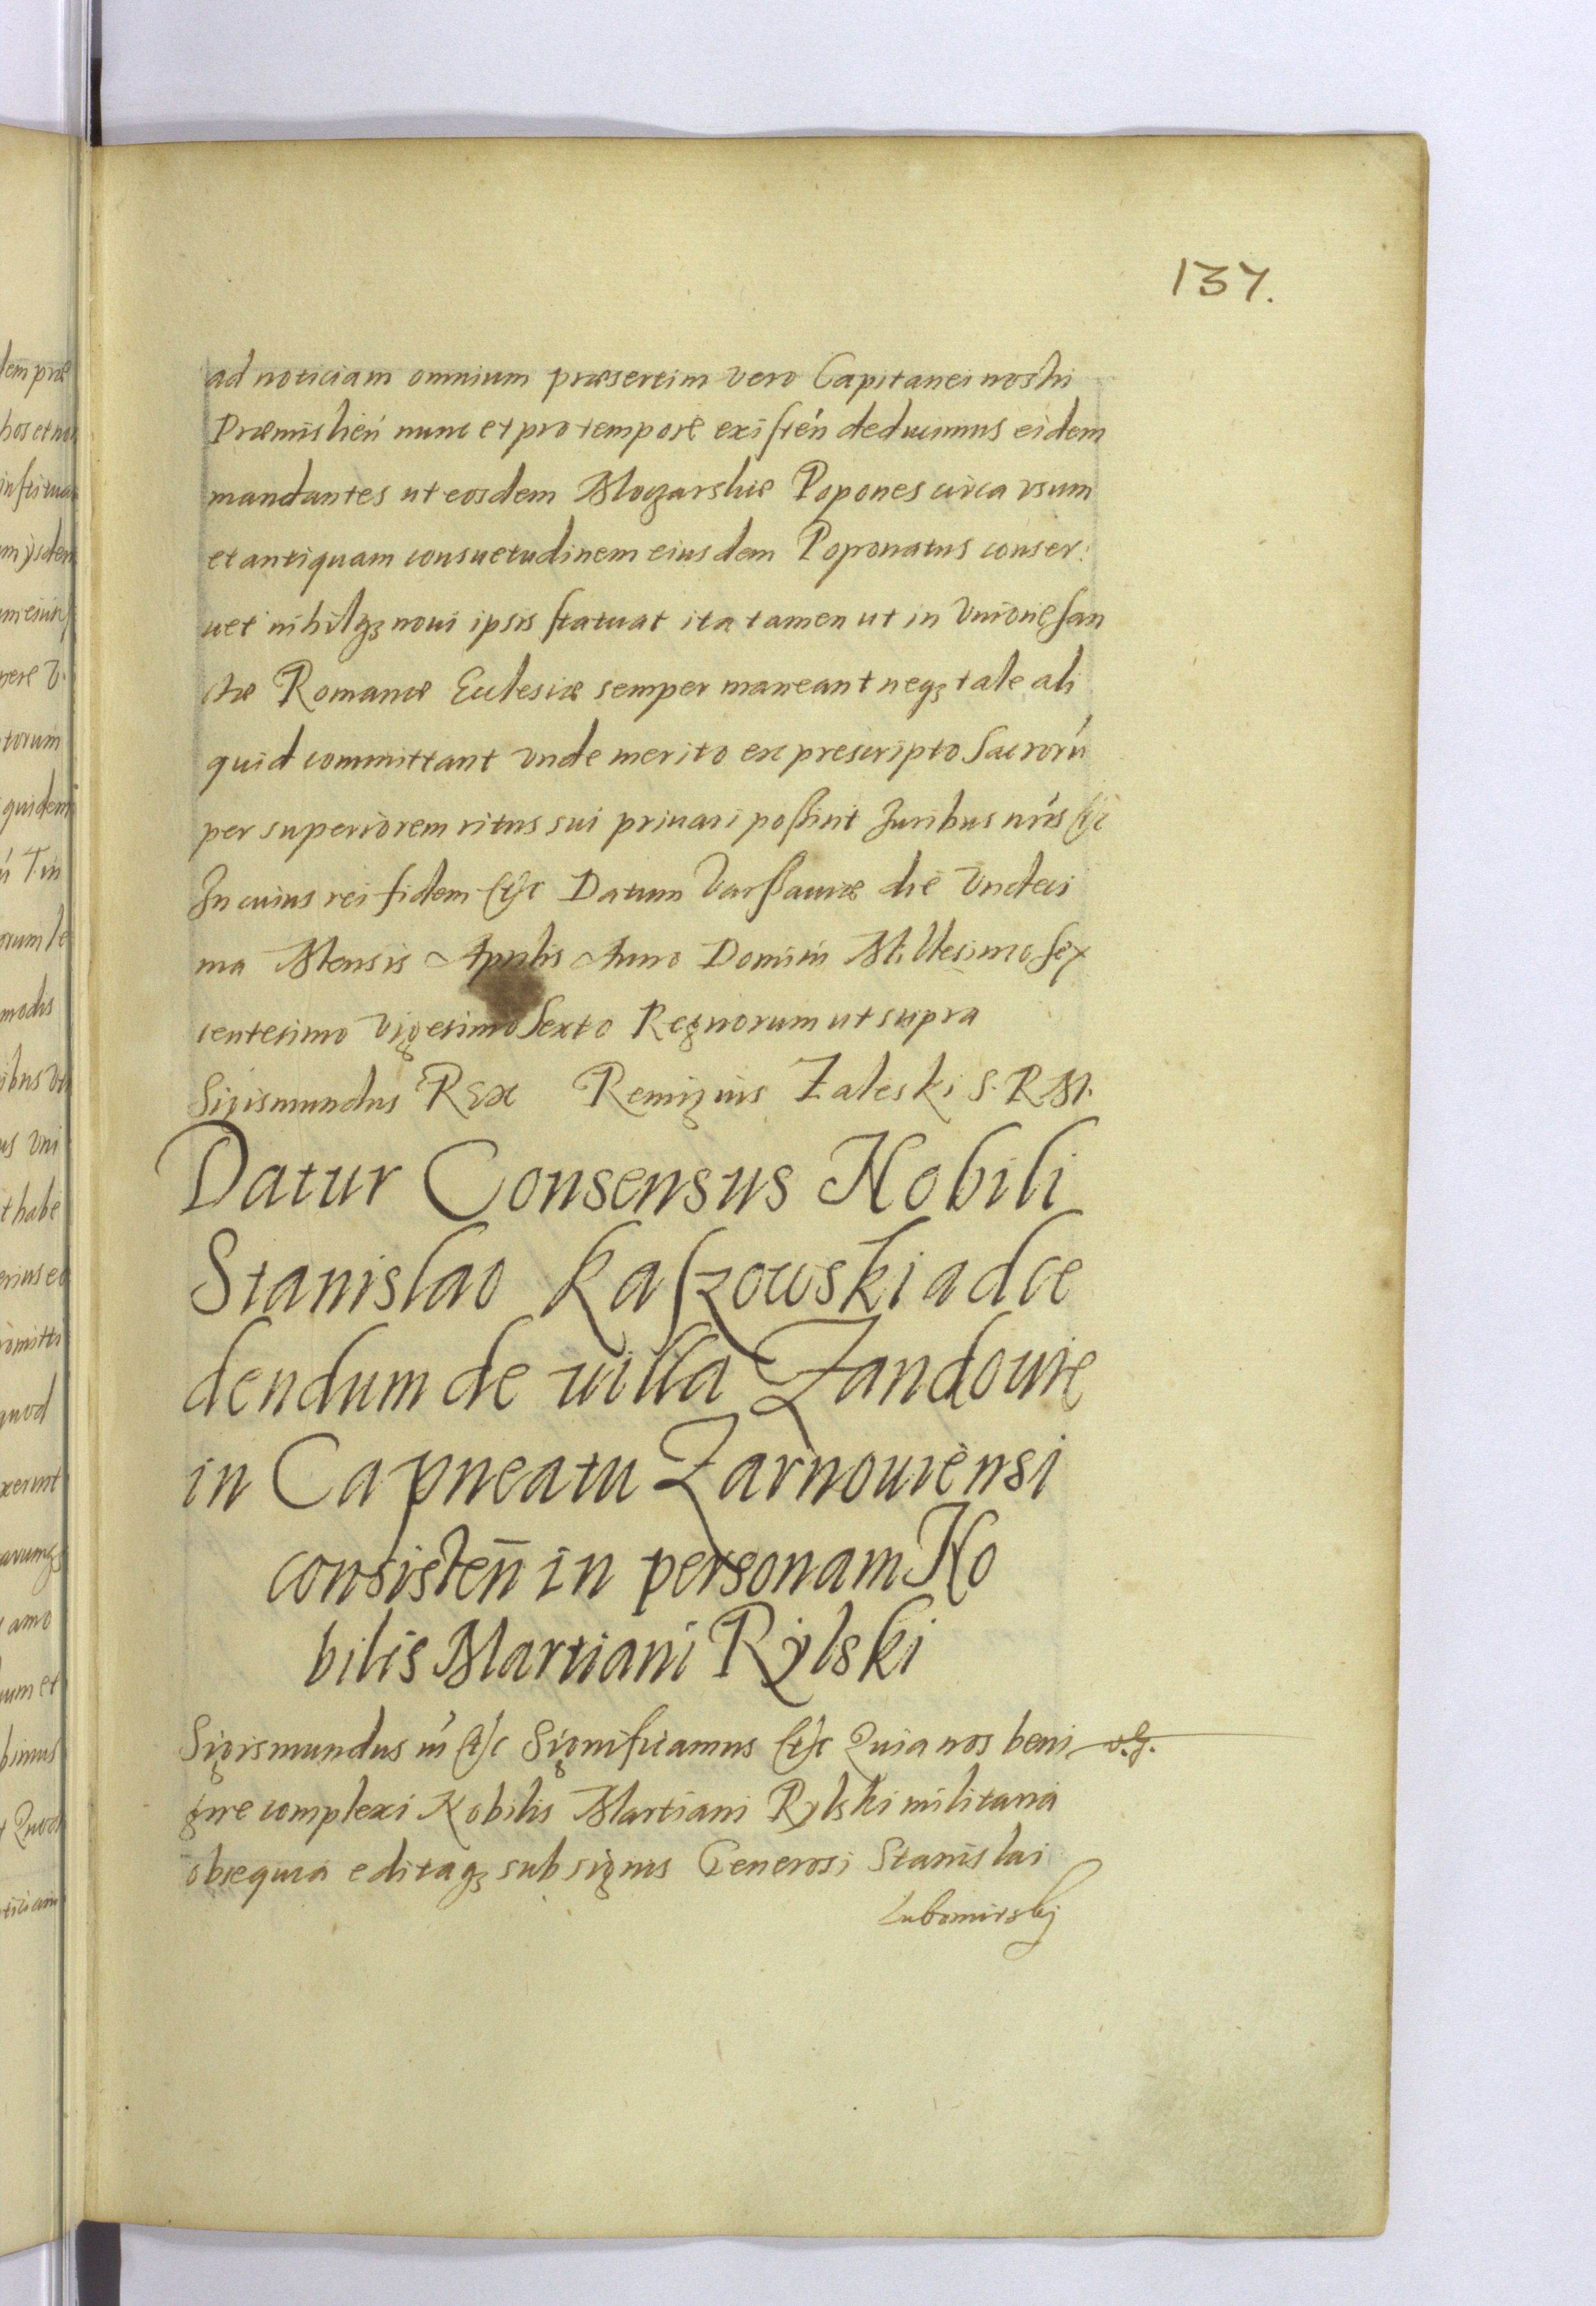 137.
ad noticiam omnium præsertim vero Capitanei nostri
Præmislień nunc et pro tempore existeń deducimus eidem
mandantes ut eosdem Popones circa vsum
et antiquam consuetudinem eiusdem Poponatus conser:
uet nihilqz noui ipsis statuat ita tamen ut in Vnione san
ctæ Romanæ Ecclesiæ semper maneant neqz tale ali
quid committant vnde merito ex prescripto Sacrorú
per superiorem ritus sui priuari possint Juribus nris &c
In cuius rei fidem &c Datum Varssauiæ die Vndeci
ma Mensis Aprilis Anno Domini Millesimo Sex
centesimo Vigesimo Sexto Regnorum ut supra
Sigismundus REX Remigius Zaleski S. R. M.
Datur Consensus Nobili
Stanislao Kaszowski ad ce
dendum de uilla Zandowie
in Capneatu Zarnouiensi
consisteñ in personam No
bilis Martiani Rylski
Sigismundus ııı &c Significamus &c Quia nos beni
gne complexi Nobilis Martiani Rylski militaria
obsequia editaqz sub signis Generosi Stanislai
Lubomirskj